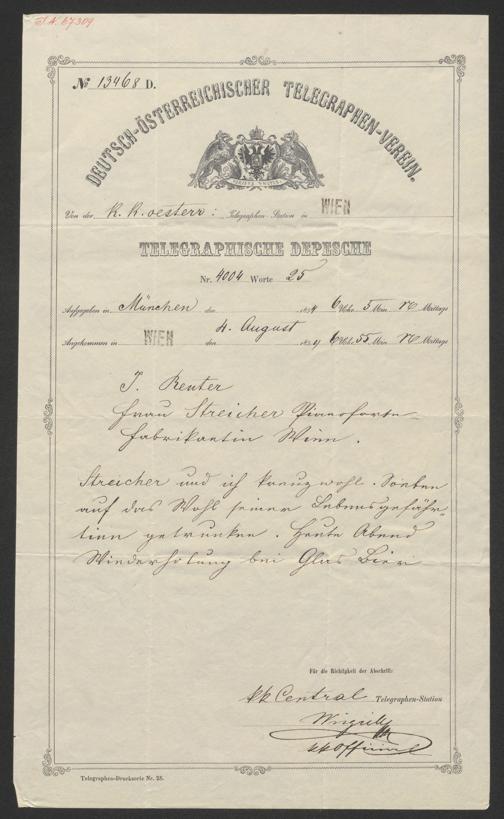 I.N. 67309
№ 13468 D.
DEUTSCH-ÖSTERREICHISCHER TELEGRAPHEN-VEREIN.
VIRIBUS UNITIS
Von der K. K. oesterr: Telegraphen-Station in WIEN
TELEGRAPHISCHE DEPESCHE
Nr. 4004 Worte 25
Aufgegeben in München den 185 6 Uhr 5 Min. Mittags
Angekommen in WIEN den 4. August 185 6 Uhr 55 Min. Mittags
J. Reuter
Frau Streicher Pianoforte-
fabrikantin Wien.
Streicher und ich kreuzwohl. Soeben
auf das Wohl seiner Lebensgefähr-
tinn getrunken. Heute Abend
Wiederholung bei Glas Bier
Für die Richtigkeit der Abschrift:
kk Central Telegraphen-Station
kk Official
Telegraphen-Drucksorte Nr. 28.